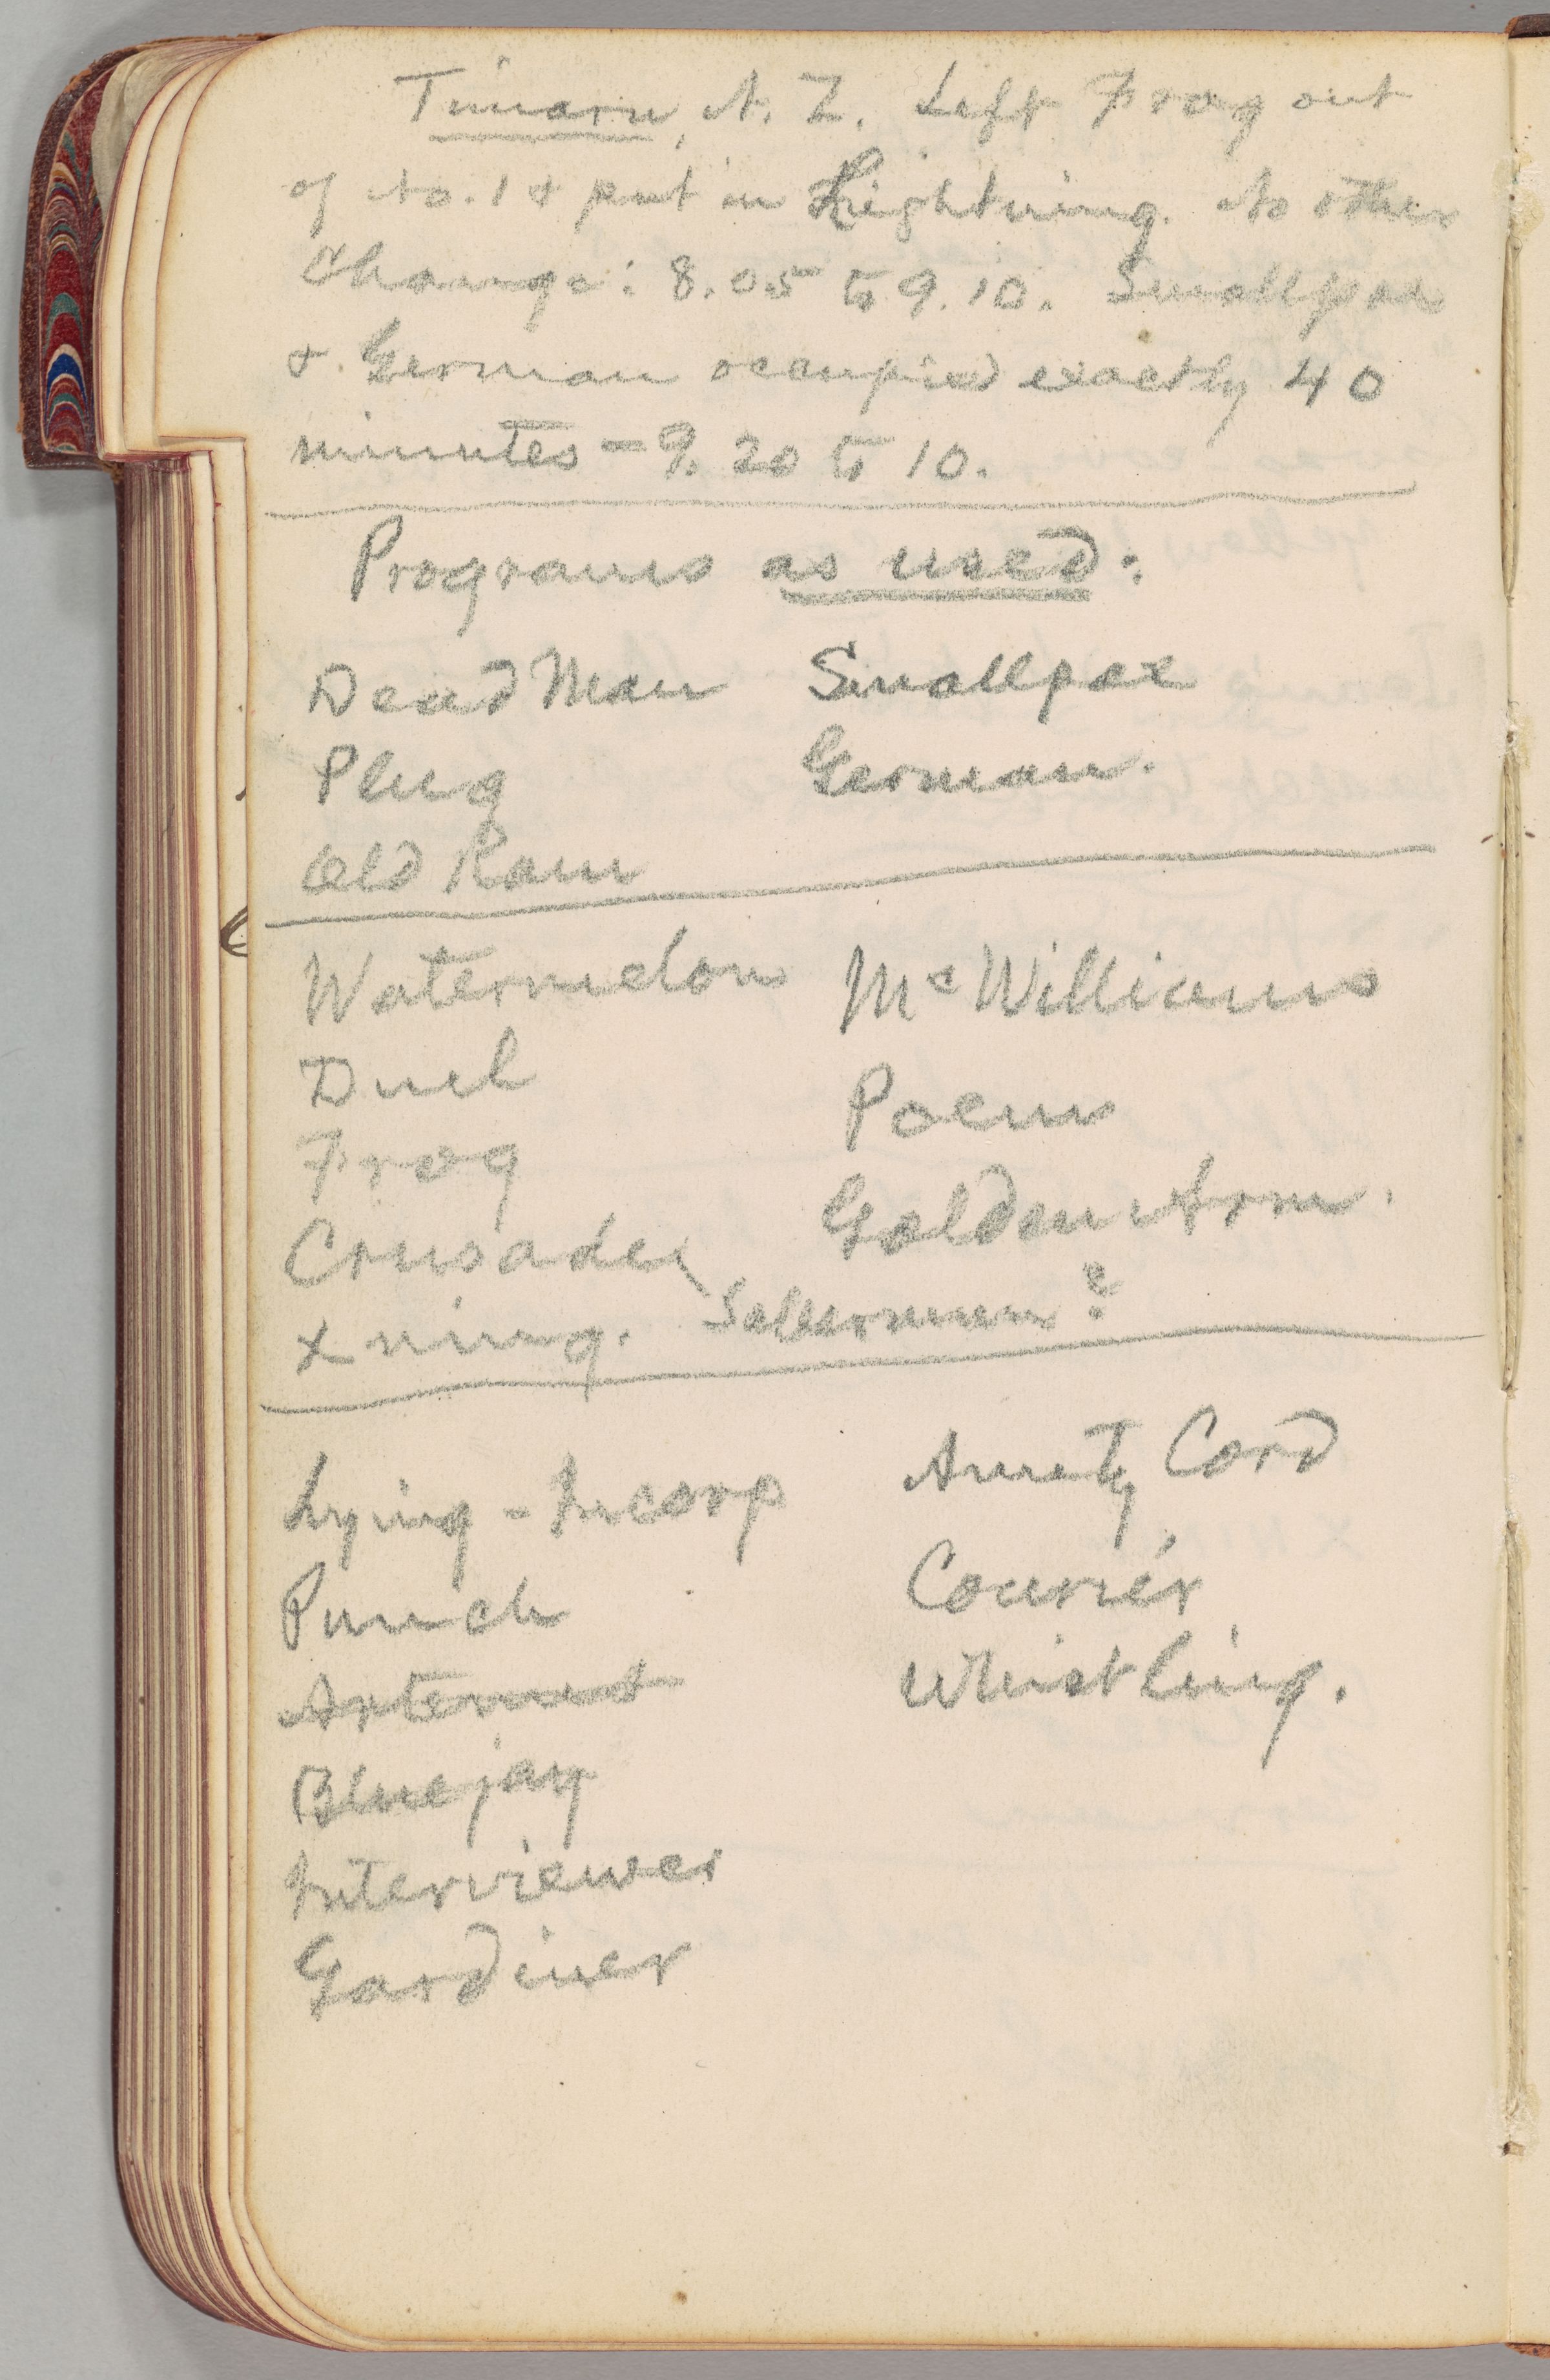 Timaru, N. Z. Left Frog out
of No. 1 & put in Lightning. No other
change: 8.05 to 9.10. Smallpox
& German occupied exactly 40
minutes — 9.20 to 10.
Programs as used:
Dead Man Smallpox
Plug German.
Old Ram
Watermelon McWilliams
Duel Poem
Frog Golden Arm.
Crusade
Xning.
Lying - Incorp Amity Cord
Punch Courier
Artemus Whistling.
Bluejay
Interviewer
Gardiner